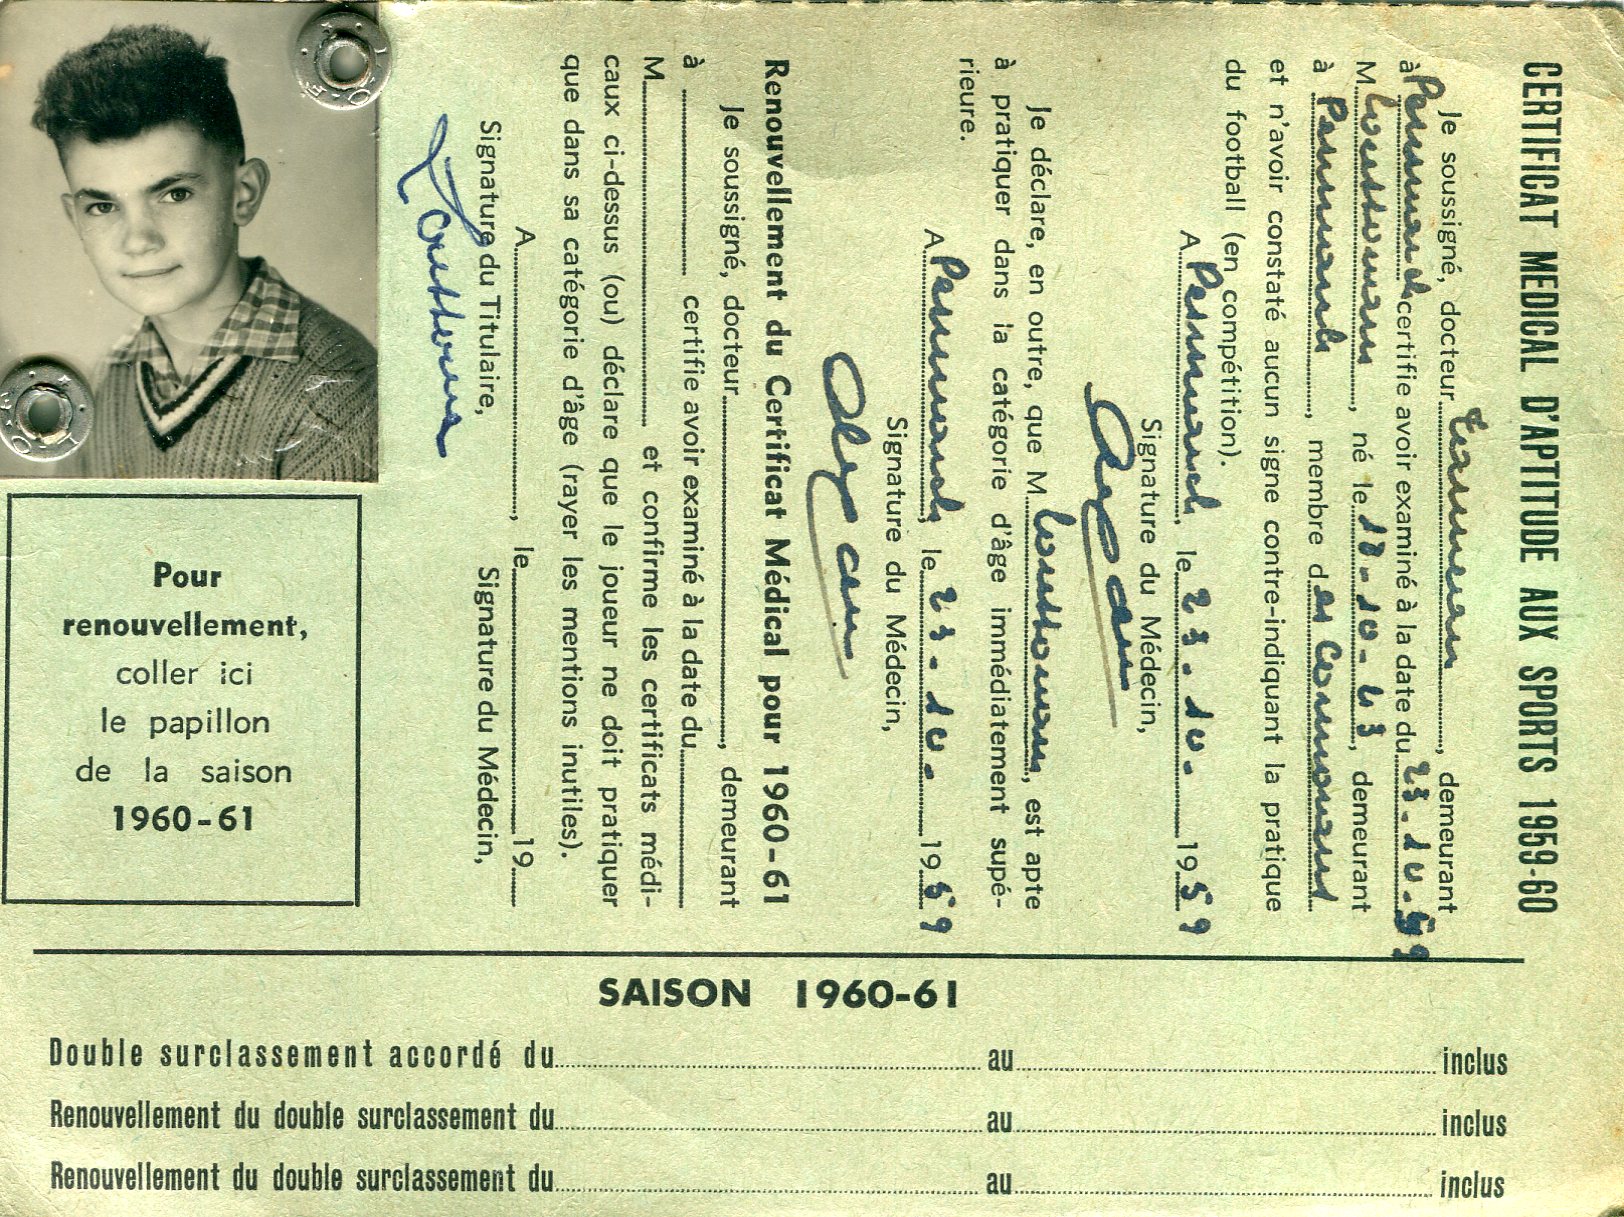 CERTIFICAT MEDICAL D'APTITUDE AUX SPORTS 1959-60
Je soussigné, docteur, demeurant
à Penmarch certifie avoir examiné à la date du 23.10.59
M., né le 18-10-43, demeurant
à Penmarch, membre des
et n'avoir constaté aucun signe contre-indiquant la pratique
du football (en compétition).
A Penmarch, le 23.10. 1959
Signature du Médecin,
Je déclare, en outre, que M., est apte
à pratiquer dans la catégorie d'âge immédiatement supé-
rieure.
A Penmarch, le 23-10- 1959
Signature du Médecin,
Renouvellement du Certificat Médical pour 1960-61
Je soussigné, docteur, demeurant
à certifie avoir examiné à la date du
M. et confirme les certificats médi-
caux ci-dessus (ou) déclare que le joueur ne doit pratiquer
que dans sa catégorie d'âge (rayer les mentions inutiles).
A, le 19
Signature du Titulaire, Signature du Médecin,
Pour
renouvellement,
coller ici
le papillon
de la saison
1960-61
SAISON 1960-61
Double surclassement accordé du au inclus
Renouvellement du double surclassement du au inclus
Renouvellement du double surclassement du au inclus